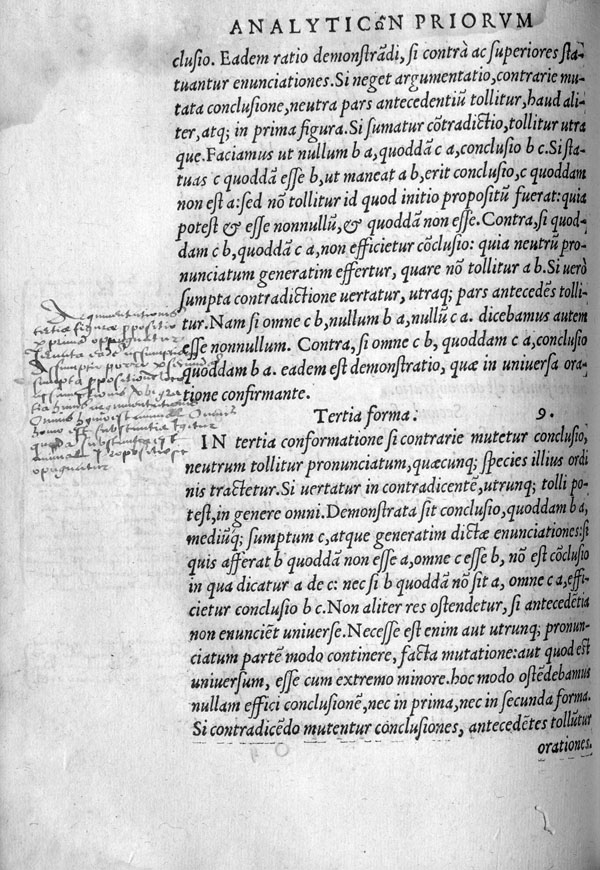 ANALYTICΩN PRIORVM
clusio. Eadem ratio demonstrãdi, si contrà ac superiores sta-
tuantur enunciationes. Si neget argumentatio, contrarie mu-
tata conclusione, neutra pars antecedentiũ tollitur, haud ali-
ter, atq; in prima figura. Si sumatur cõtradictio, tollitur utra
que. Faciamus ut nullum b a, quoddã c a, conclusio b c. Si sta-
tuas c quoddã esse b, ut maneat a b, erit conclusio, c quoddam
non est a: sed nõ tollitur id quod initio propositũ fuerat: quia
potest & esse nonnullũ, & quoddã non esse. Contra, si quod-
dam c b, quoddã c a, non efficietur cõclusio: quia neutrũ pro-
nunciatum generatim effertur, quare nõ tollitur a b. Si uerò
sumpta contradictione uertatur, utraq; pars antecedẽs tolli-
tur. Nam si omne c b, nullum b a, nullũ c a. dicebamus autem
esse nonnullum. Contra, si omne c b, quoddam c a, conclusio
quoddam b a. eadem est demonstratio, quæ in uniuersa ora-
tione confirmante.
Tertia forma. 9.
IN tertia conformatione si contrarie mutetur conclusio,
neutrum tollitur pronunciatum, quæcunq; species illius ordi
nis tractetur. Si uertatur in contradicentẽ, utrunq; tolli po-
test, in genere omni. Demonstrata sit conclusio, quoddam b a,
mediũq; sumptum c, atque generatim dictæ enunciationes: si
quis afferat b quoddã non esse a, omne c esse b, nõ est cõclusio
in qua dicatur a de c: nec si b quoddã nõ sit a, omne c a, effi-
cietur conclusio b c. Non aliter res ostendetur, si antecedẽtia
non enunciẽt uniuerse. Necesse est enim aut utrunq; pronun-
ciatum partẽ modo continere, facta mutatione: aut quod est
uniuersum, esse cum extremo minore. hoc modo ostẽdebamus
nullam effici conclusionẽ, nec in prima, nec in secunda forma.
Si contradicẽdo mutentur conclusiones, antecedẽtes tollũtur
orationes.